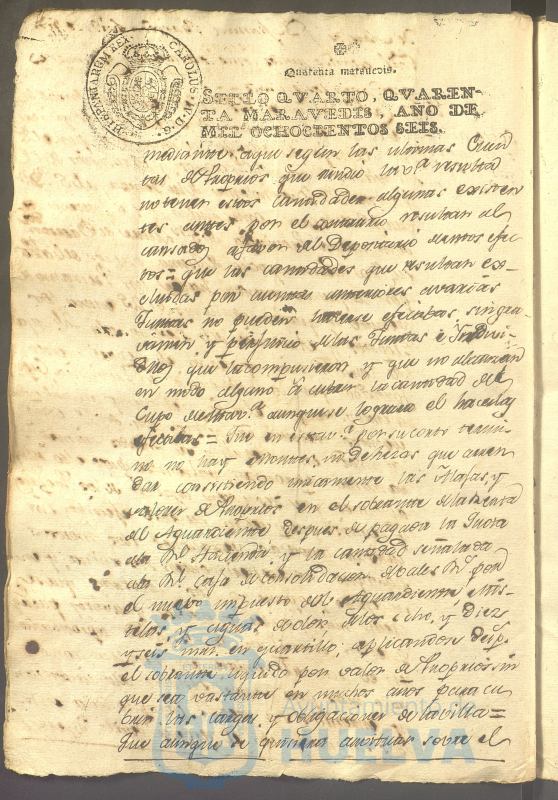 CAROLUS IV D. G. HISPANIARUM REX
Quarenta maravedis.
SELLO QVARTO, QVAREN-
TA MARAVEDIS, AÑO DE
MIL OCHOCIENTOS SEIS.
mediante aque segun las ultimas Quen
tas de Proprios que rindio la v.ª resultad
no tener estos Cantidades algunas existen
tes antes por el contrario resultan al
canzados afavor del Depositario de estos efec
tos = que las cantidades que resultan ex-
cluidas por cuentas anteriores avarias
Juntas no pueden hacerse efectivas, sin gra-
vamen y perjuicio de las Juntas e Yndivi
duos que la compusieron y que no alcanzan
en modo alguno a cubrir la cantidad del
Cupo aunque se lograra el hacerlas
efectivas = Que en esta v.ª por su corto termi-
no no hay montes, ni deheras que arren
dar consistiendo unicamente las Alajas, y
valores de Proprios en el sobrante de la Renta
del Aguardiente despues de pagada la Quota
ala R.l Hacienda, y la cantidad señalada
ala R.l Caja de consolidacion de vales R.s por
el nuevo impuesto del Aguardiente, mis-
telas, y aguas de olor de los ocho, y Diez
y seis mrs. en quartillo, aplicandose desp.s
el sobrante liquido por valor de Proprios sin
que sea vastante en muchos años para cu
brir las cargas, y obligaciones de la villa =
Que aunque se quisiera arbitrar sobre el
Ayuntamiento de
HUELVA